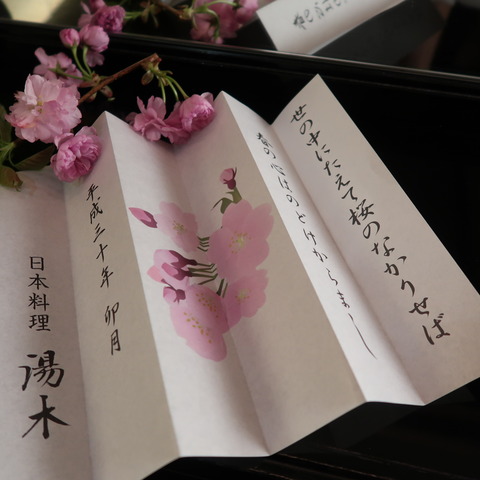 世の中にたえて桜のなかりせば
春の心はのどけからまし
平成三十年 卯月
日本料理
湯木